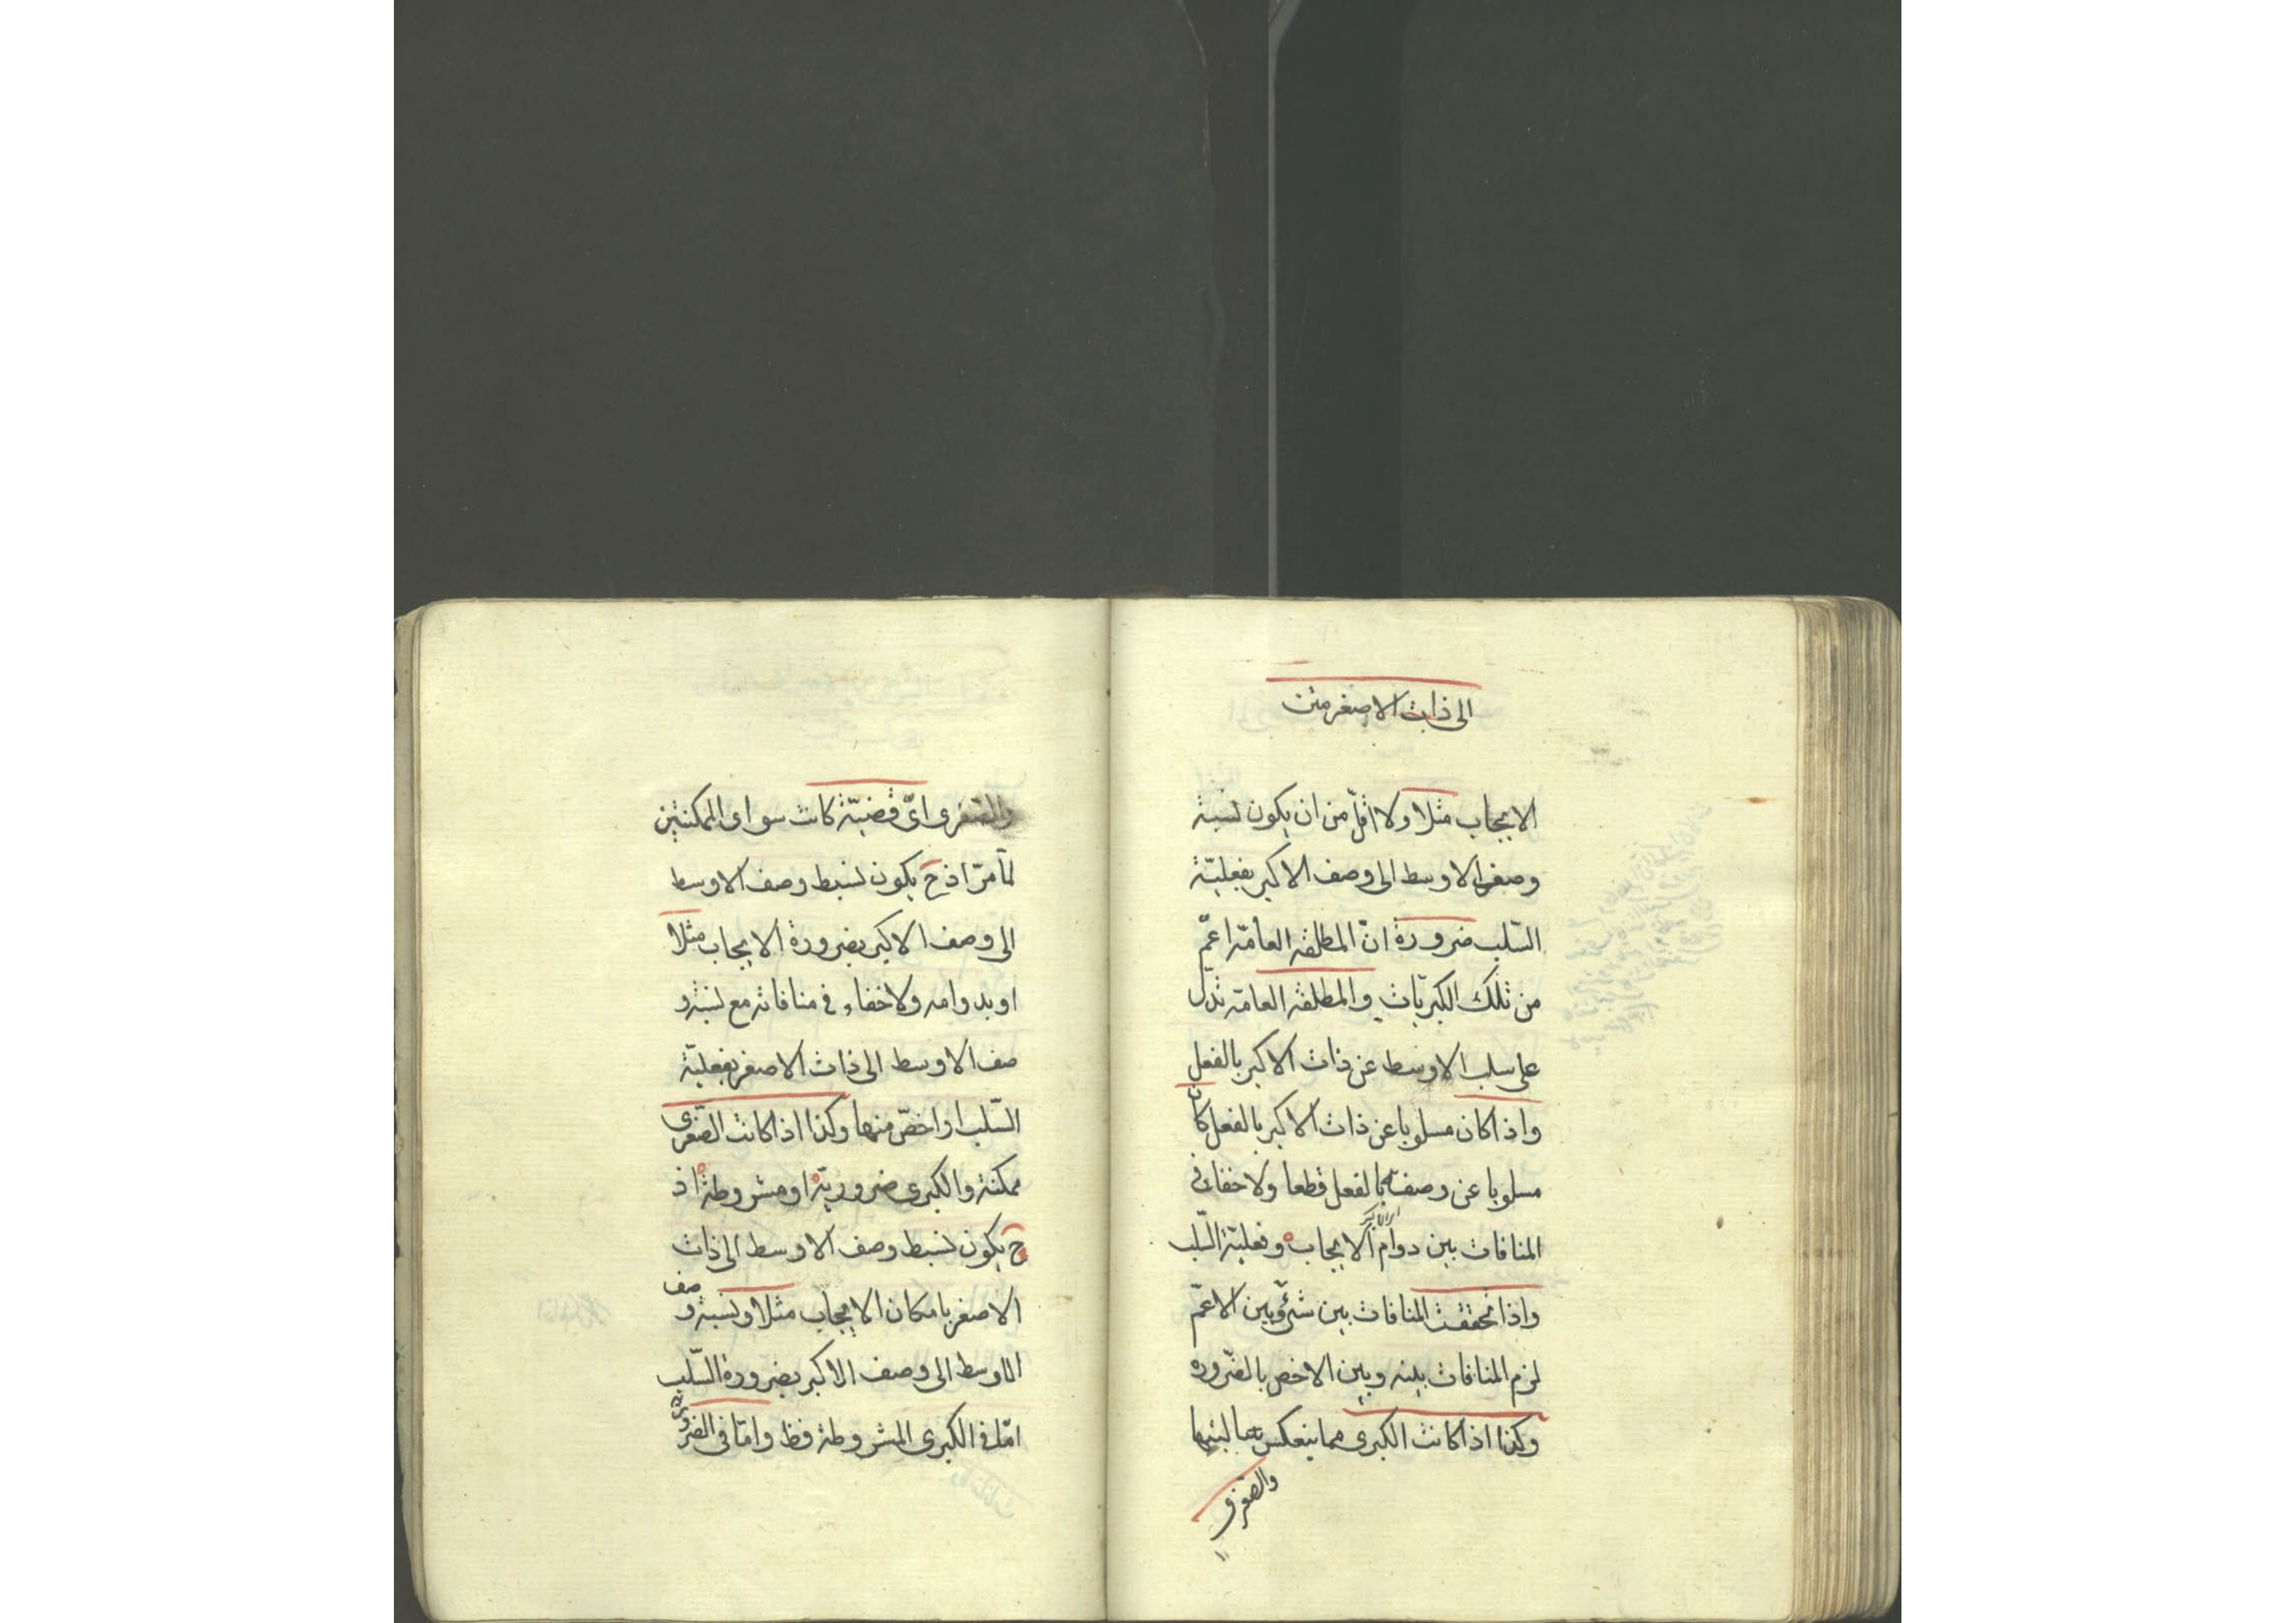 الى ذات الاصغر متن
الايجاب مثلا ولا اقلّ من ان يكون لنسبة
وصف الاوسط الى وصف الاكبر بفعليّة
السّلب ضرورة انّ المطلقه العامّة اعمّ
من تلك الكبريّات والمطلقه العامّة تدلّ
على سلب الاوسط عن ذات الاكبر بالفعل
واذا كان مسلوبا عن ذات الاكبر بالفعل كان
مسلوبا عن وصفه بالفعل قطعا ولا خفاء فى
المنافات بين دوام الايجاب وفعلية السّلب
واذا تحققت المنافات بين شئ وبين الاعمّ
لزم المنافات بينه وبين الاخص بالضّروره
وكذا اذا كانت الكبرى مما ينعكس
والصّغرى
والصّغرى اىّ قضيّة كانت سواى الممكنتين
لما مرّ اذ ح يكون لنسبة وصف الاوسط
الى وصف الاكبر بضرورة الايجاب مثلا
او بدوامه ولا خفاء فى منافاته مع لنسبة و
صف الاوسط الى ذات الاصغر بفعليّة
السّلب او اخصّ منها وكذا اذا كانت الصّغرى
ممكنة والكبرى ضروريّة او مشروطة اذ
ح يكون لنسبة وصف الاوسط الى ذات
الاصغر بامكان الايجاب مثلا ولنسبة وصف
الاوسط الى وصف الاكبر بضرورة السّلب
امّا فى الكبرى المشروطة فظ وامّا فى الضّروريّة